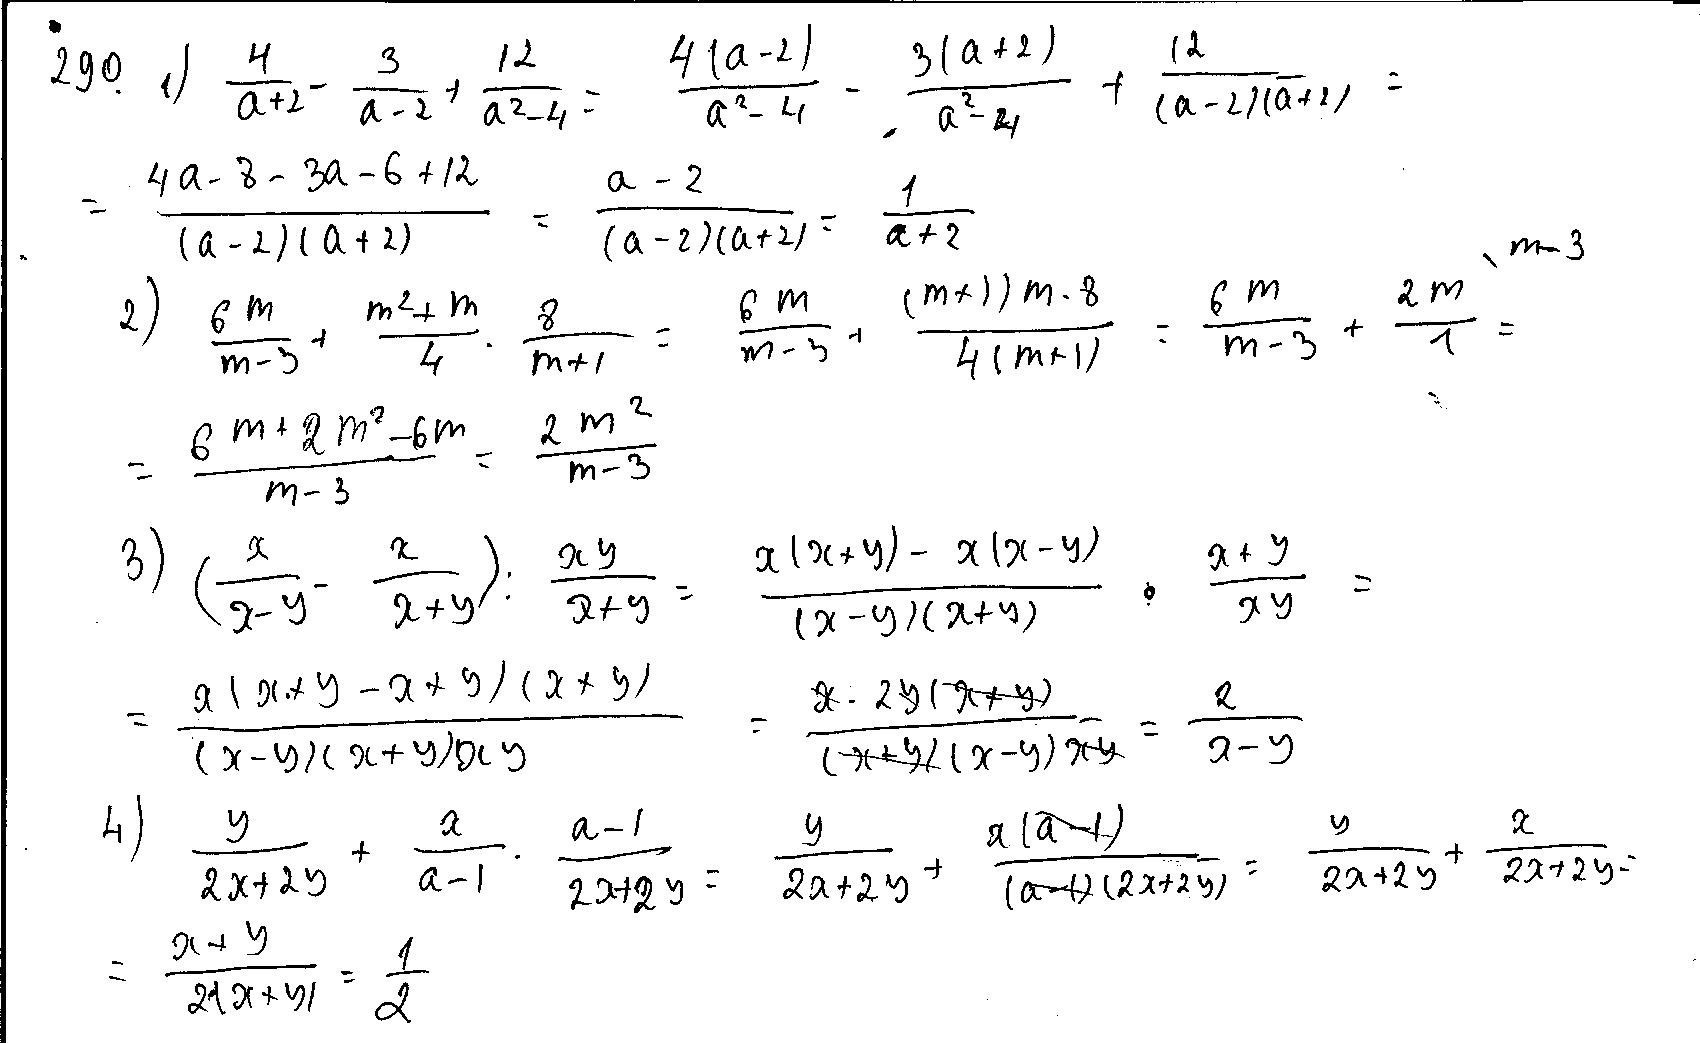 290. 1) 4/(a+2) - 3/(a-2) + 12/(a²-4) = 4(a-2)/(a²-4) - 3(a+2)/(a²-4) + 12/((a-2)(a+2)) =
= (4a-8-3a-6+12)/((a-2)(a+2)) = (a-2)/((a-2)(a+2)) = 1/(a+2)
2) 6m/(m-3) + (m²+m)/4 · 8/(m+1) = 6m/(m-3) + ((m+1)) m·8/(4(m+1)) = 6m/(m-3) + 2m/1 \ m-3 =
= (6m+2m²-6m)/(m-3) = 2m²/(m-3)
3) (x/(x-y) - x/(x+y)) : xy/(x+y) = (x(x+y) - x(x-y))/((x-y)(x+y)) · (x+y)/xy =
= x(x+y-x+y)(x+y)/((x-y)(x+y)xy) = x·2y(x+y)/((x+y)(x-y)xy) = 2/(x-y)
4) y/(2x+2y) + x/(a-1) · (a-1)/(2x+2y) = y/(2x+2y) + x(a-1)/((a-1)(2x+2y)) = y/(2x+2y) + x/(2x+2y) =
= (x+y)/(2(x+y)) = 1/2